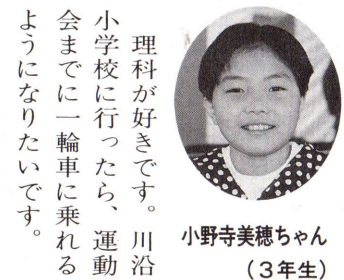 理科が好きです。川沿
小学校に行ったら、運動
会までに一輪車に乗れる
ようになりたいです。
小野寺美穂ちゃん
(3年生)